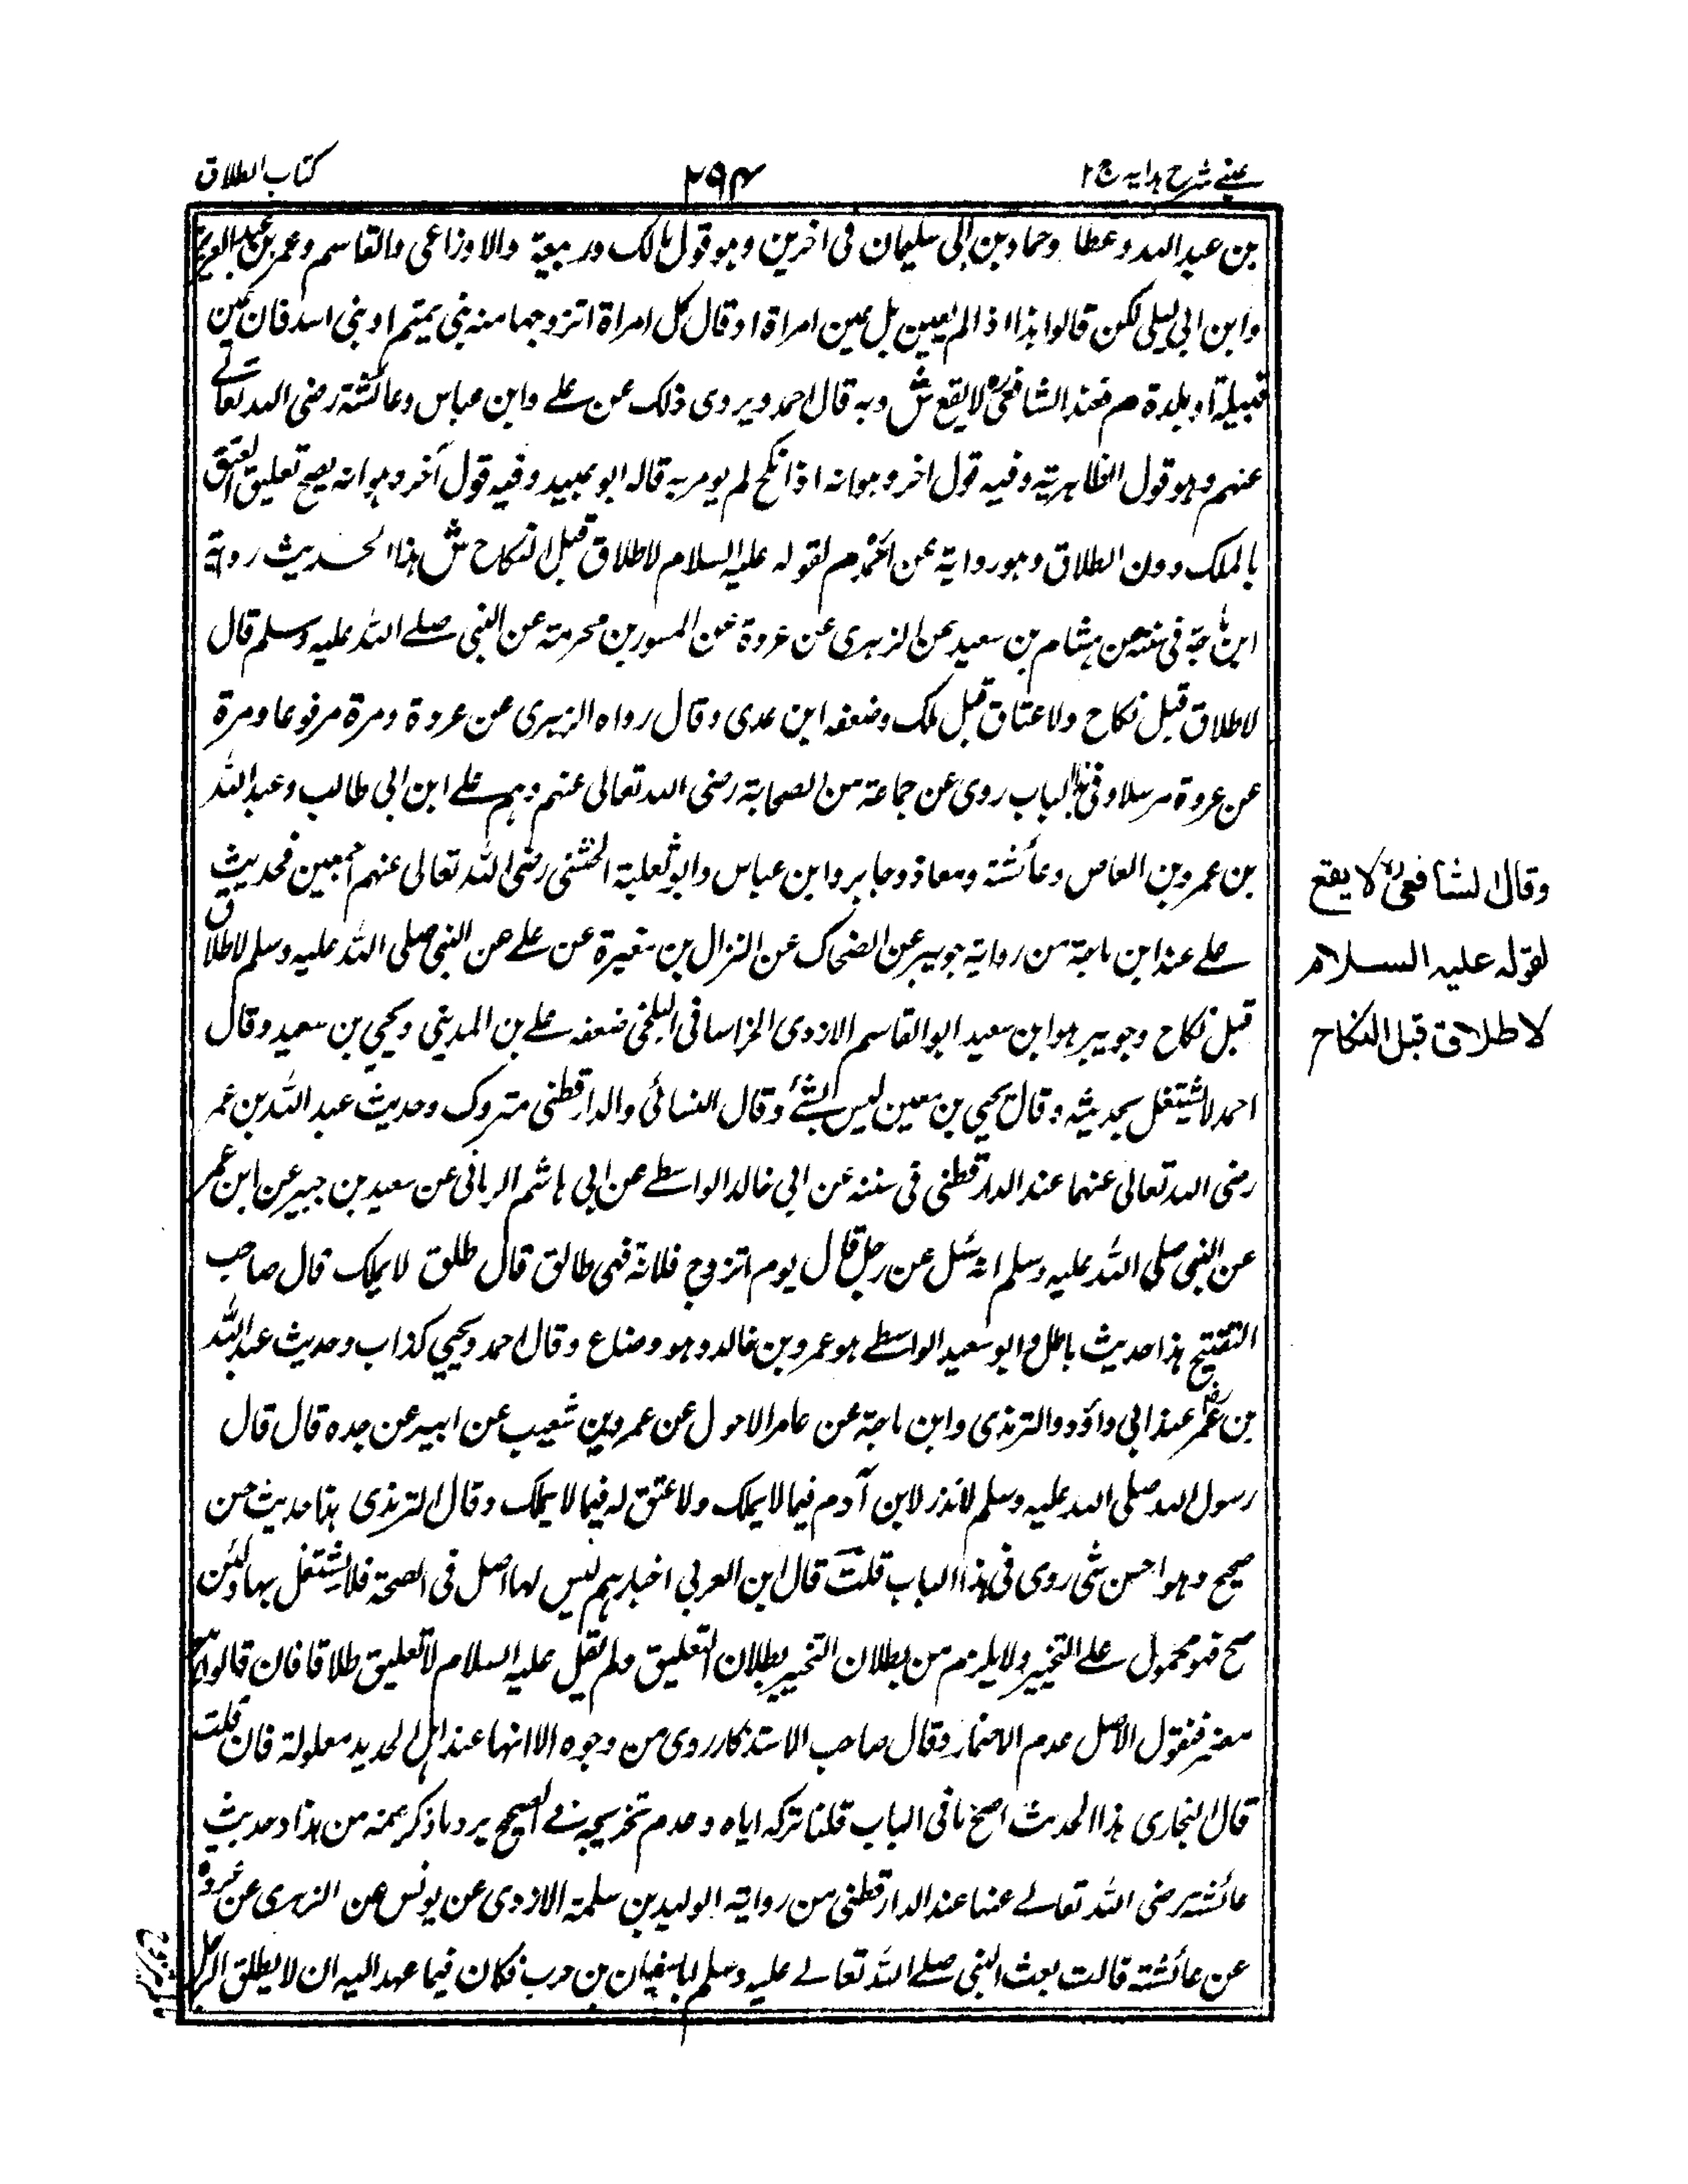 عینے شرح ہدایہ ج ۲
۲۹۴
کتاب الطلاق
بن عبد اللہ وعطا وحماد بن ابی سلیمان فی اخرین وہو قول مالک وربیعۃ والاوزاعی والقاسم وعمر بن عبد العزیز
وابن ابی لیلی لکن قالوا ہذا اذا لم یعین بل عین امراۃ او قال کل امراۃ اتزوجہا منہ بنی تمیم او بنی اسد فان عین
قبیلۃ او بلدۃ م فعند الشافعی لا یقع ش وبہ قال احمد ویروی ذلک عن علے وابن عباس وعائشۃ رضی اللہ تعالے
عنہم وہو قول الظاہریۃ وفیہ قول اخر وہو انہ اذا نکح لم یومر بہ قالہ ابو عبید وفیہ قول آخر وہو انہ یصح تعلیق العتق
بالملک دون الطلاق وہو روایۃ عن احمد م لقولہ علیہ السلام لا طلاق قبل النکاح ش ہذا الحدیث رواہ
ابن ماجۃ فی سننہ عن ہشام بن سعید عن الزہری عن عروۃ عن المسور بن محرمتہ عن النبی صلے اللہ علیہ وسلم قال
لا طلاق قبل نکاح ولا عتاق قبل ملک وضعفہ ابن عدی وقال رواہ الزہری عن عروۃ ومرۃ مرفوعا ومرۃ
عن عروۃ مرسلا وفی ہذا الباب روی عن جماعۃ من الصحابۃ رضی اللہ تعالی عنہم وہم علے ابن ابی طالب وعبد اللہ
بن عمرو بن العاص وعائشۃ ومعاذ وجابر وابن عباس وابو ثعلبۃ الخشنی رضی اللہ تعالی عنہم اجمعین فحدیث
علے عند ابن ماجۃ من روایۃ جویبر عن الضحاک عن النزال بن مغیرۃ عن علے عن النبی صلی اللہ علیہ وسلم لا طلاق
قبل نکاح وجویبر ہو ابن سعید ابو القاسم الازدی الخراسانی البلخی ضعفہ علے بن المدینی ویحیی بن سعید وقال
احمد لا یشتغل بحدیثہ وقال یحیی بن معین لیس بشئ وقال النسائی والدارقطنی متروک وحدیث عبد اللہ بن عمر
رضی اللہ تعالی عنہما عند الدارقطنی فی سننہ عن ابی خالد الواسطے عن ابی ہاشم الرمانی عن سعید بن جبیر عن ابن عمر
عن النبی صلی اللہ علیہ وسلم انہ سئل عن رجل قال یوم اتزوج فلانۃ فہی طالق قال طلق لا یملک قال صاحب
التنقیح ہذا حدیث باطل وابو سعید الواسطے ہو عمرو بن خالد وہو وضاع وقال احمد ویحیی کذاب وحدیث عبد اللہ
بن عمر عند ابی داؤد والترمذی وابن ماجۃ عن عامر الاحول عن عمرو بن شعیب عن ابیہ عن جدہ قال قال
رسول اللہ صلی اللہ علیہ وسلم لا نذر لابن آدم فیما لا یملک ولا عتق لہ فیما لا یملک وقال الترمذی ہذا حدیث حسن
صحیح وہو احسن شی روی فی ہذا الباب قلت قال ابن العربی اخبارہم لیس لہا اصل فی الصحۃ فلا یشتغل بہا ولئن
صح فہو محمول علے التخییر ولا یلزم من بطلان التخییر بطلان التعلیق ولم یقل علیہ السلام لا تعلیق طلاقا فان قالوا
مضمر فنقول الاصل عدم الاضمار وقال صاحب الاستذکار روی من وجوہ الا انہا عند اہل الحدیث معلولۃ فان قلت
قال البخاری ہذا الحدیث اصح مافی الباب قلنا ترکہ ایاہ وعدم تخریجہ فے الصحیح یرد ما ذکر عنہ من ہذا وحدیث
عائشہ رضی اللہ تعالے عنہا عند الدارقطنی من روایۃ الولید بن سلمۃ الازدی عن یونس عن الزہری عن عروۃ
عن عائشۃ قالت بعث النبی صلے اللہ تعالے علیہ وسلم ابا سفیان بن حرب فکان فیما عہد الیہ ان لا یطلق الرجل
وقال الشافعی لا یقع
لقولہ علیہ السلام
لا طلاق قبل النکاح